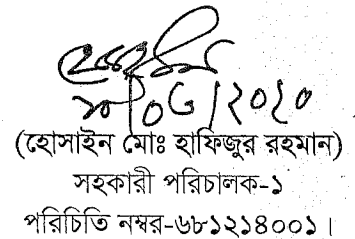 (হোসাইন মোঃ হাফিজুর রহমান)
সহকারী পরিচালক-১
পরিচিতি নম্বর-৬৮১২১৪০০১।